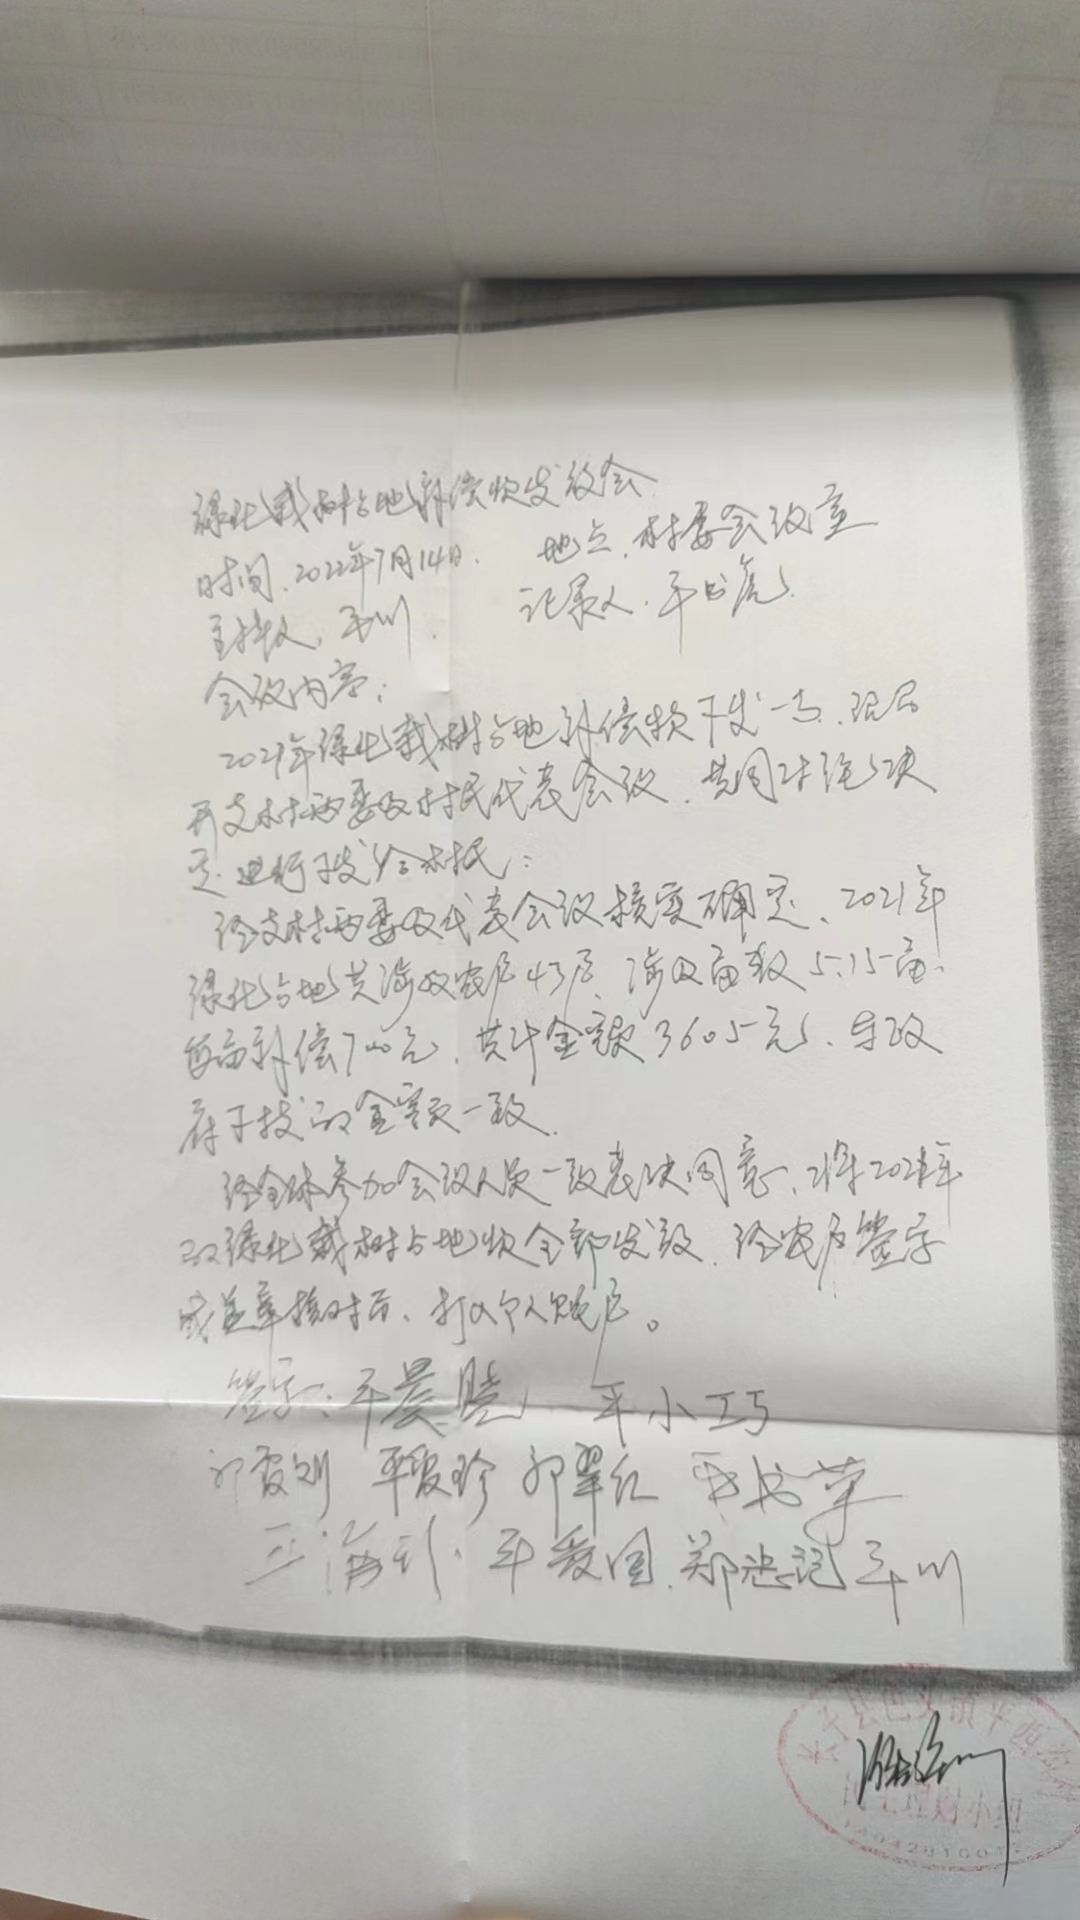 绿化栽树占地补偿款发放会
时间、2022年7月14日. 地点、村委会议室
主持人、平川. 记录人、平书亮.
会议内容:
2021年绿化栽树占地补偿款下发一事、现召
开支村两委及村民代表会议、共同讨论决
定进行下发给村民:
经支村两委及代表会议核实确定、2021年
绿化占地共涉及农户43户、涉及亩数5.15亩.
每亩补偿700元、共计金额3605元、与政
府下拨的金额一致.
经全体参加会议人员一致表决同意、将2021年
的绿化栽树占地款全部发放、经农户签字
或盖章核对后、打入个人账户。
签字: 平晨晓 平小巧
平爱珍 郭翠红 平书荣
平爱国 郑忠记 平川
长子县 镇平西
民主理财小组